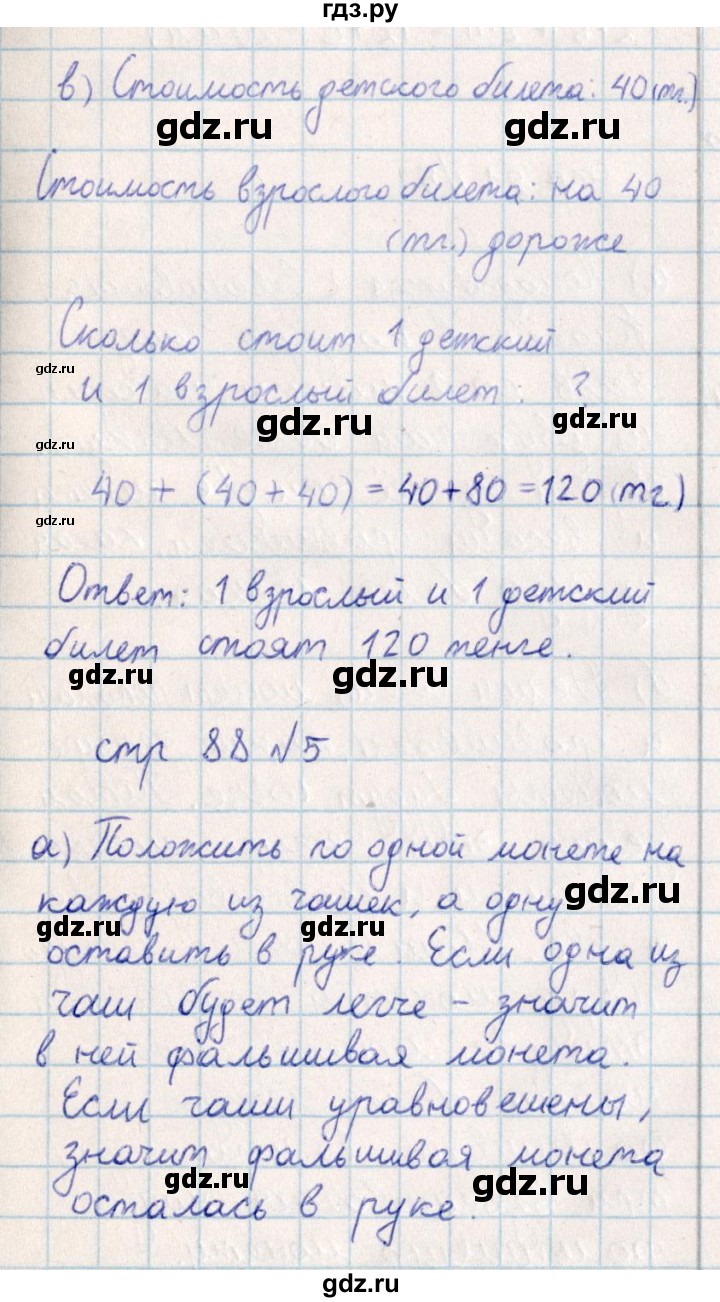 гдз.ру
в) Стоимость детского билета: 40 (тг.)
gdz.ru gdz.ru
Стоимость взрослого билета: на 40
(тг.) дороже
Сколько стоит 1 детский
gdz.ru
и 1 взрослый билет: ?
gdz.ru gdz.ru
gdz.ru
40 + (40 + 40) = 40 + 80 = 120 (тг.)
gdz.ru
Ответ: 1 взрослый и 1 детский
билет стоят 120 тенге.
gdz.ru gdz.ru
стр 88 №5
а) Положить по одной монете на
каждую из чашек, а одну
gdz.ru
gdz.ru gdz.ru
оставить в руке Если одна из
чаш будет легче – значит
в ней фальшивая монета.
Если чаши уравновешены,
значит фальшивая монета
gdz.ru gdz.ru
осталась в руке.
gdz.ru